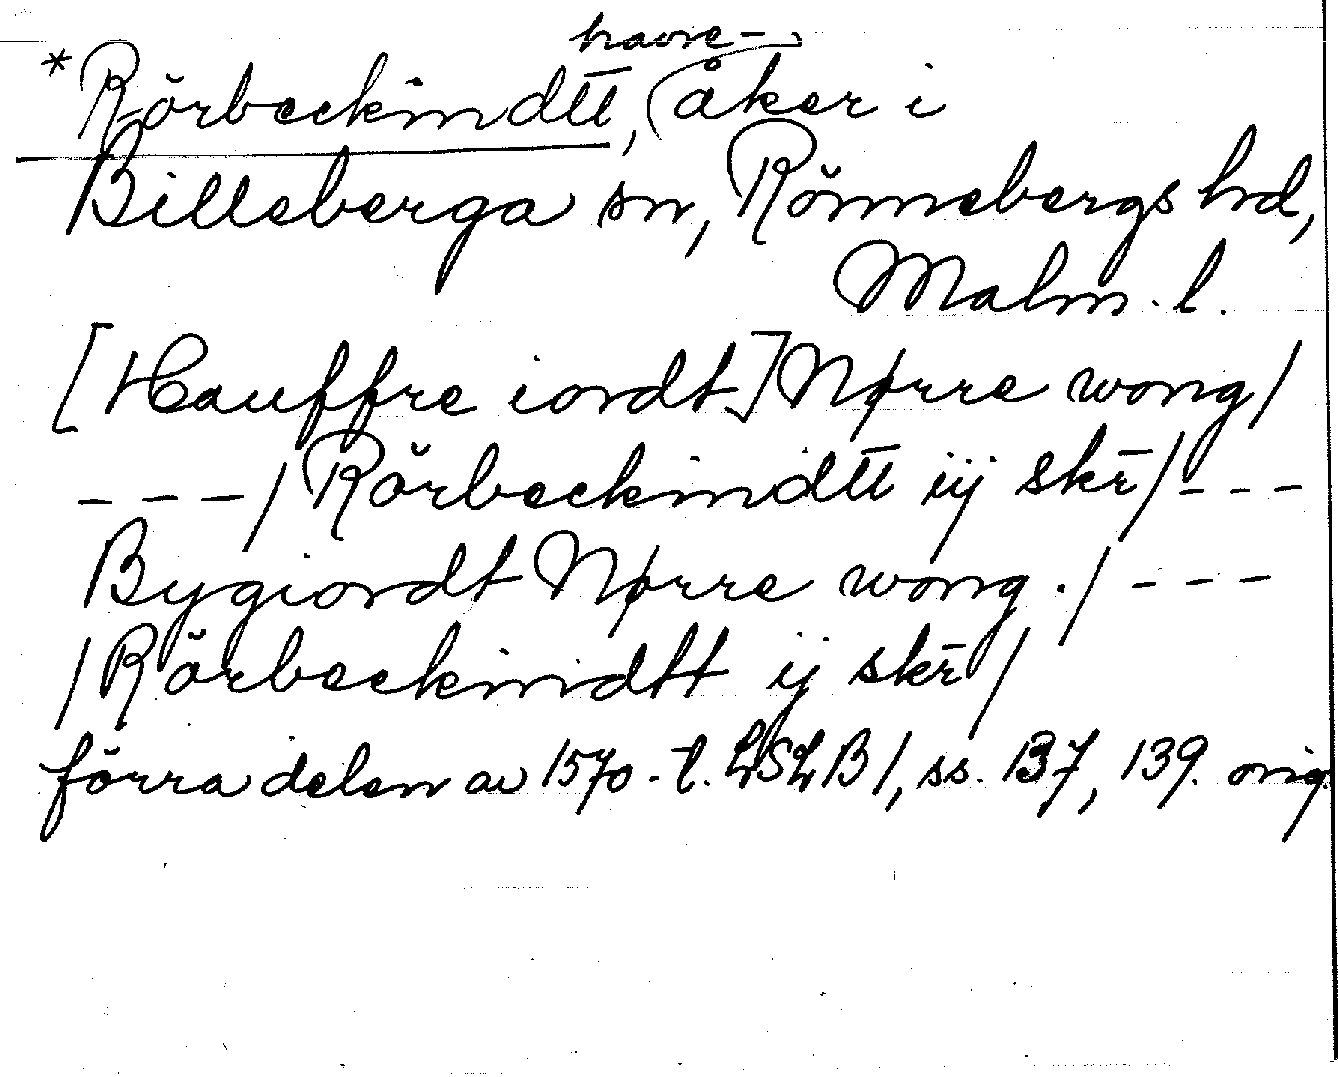 havre-
*Rörbeckindtt̅, åker i
Billeberga sn, Rönnebergs hd,
Malm. l.
[Hauffre iordt] Nørre wong/
---/Rörbeckindtt̅ iij skr̅/---
Bygiordt Nørre wong./---
/Rörbeckindtt ij skr̅/
förra delen av 1570-t. LSLB 1, ss. 137, 139. orig.